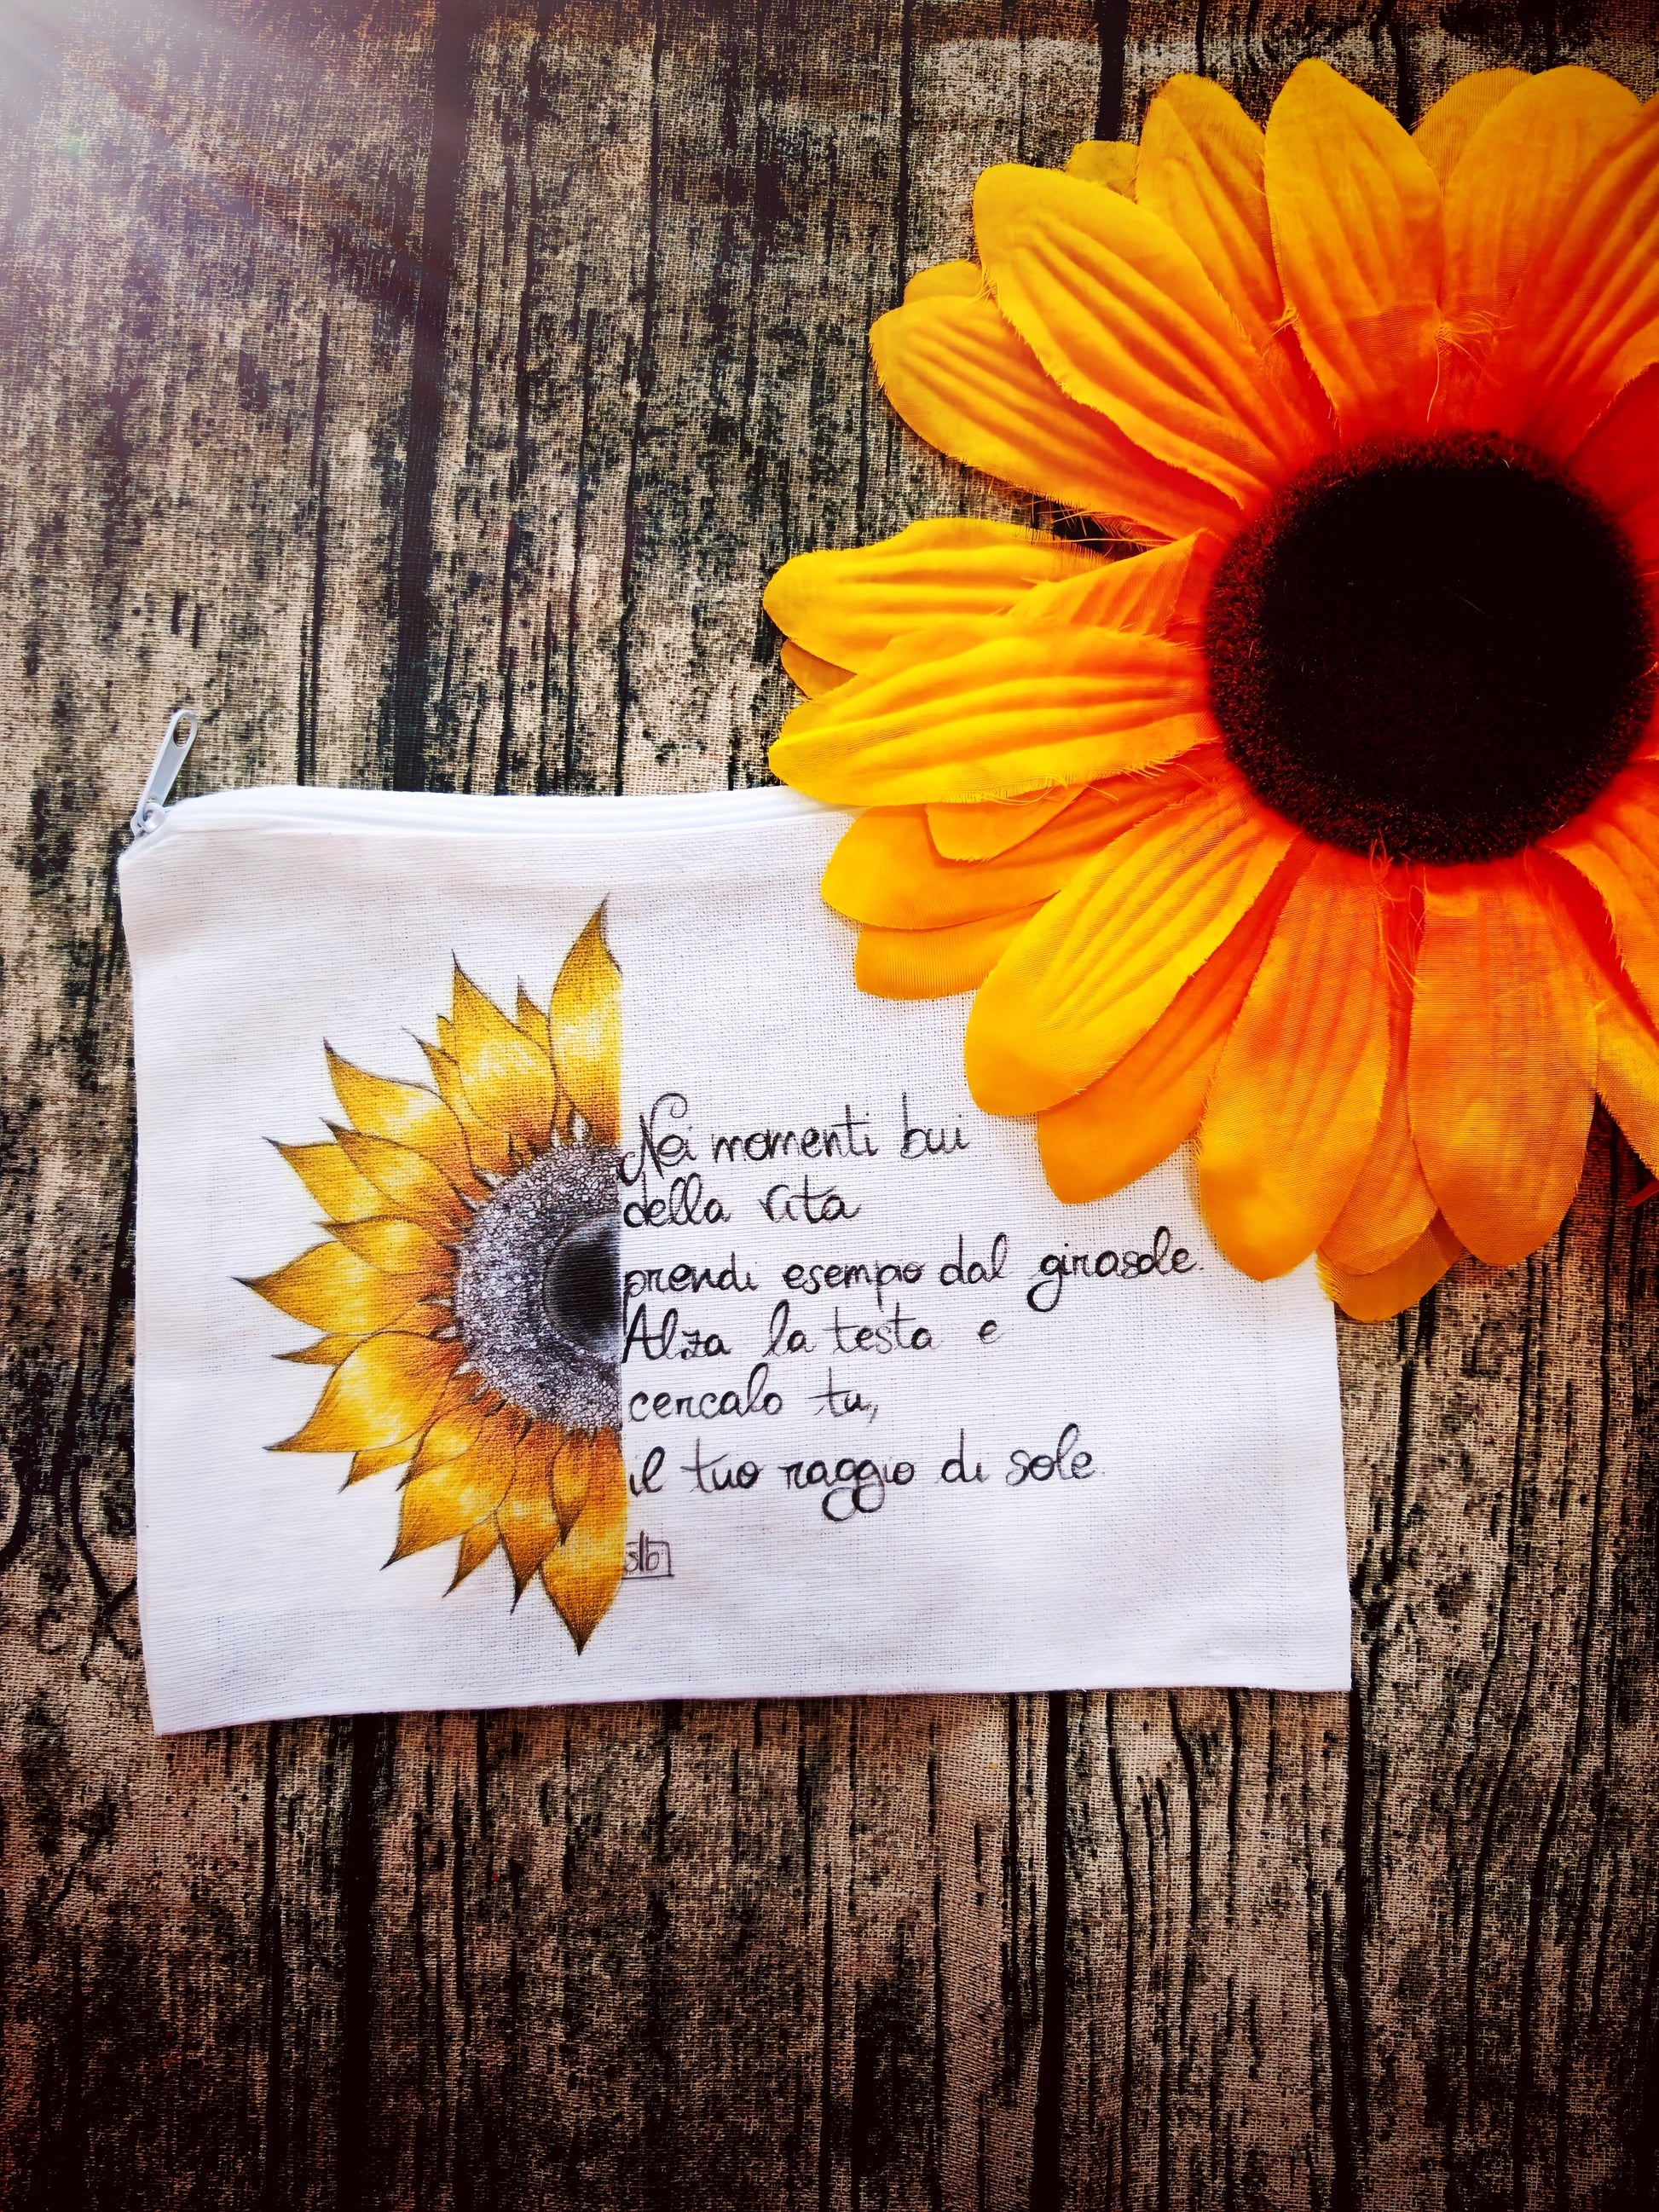 Nei momenti bui
della vita
prendi esempo dal girasole.
Alza la testa e
cercalo tu,
il tuo raggio di sole.
slb